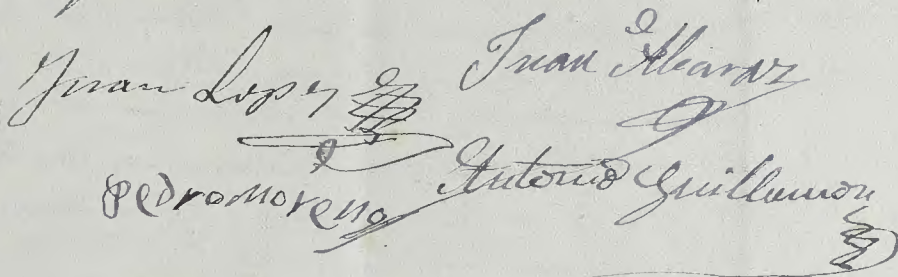 Juan Lopez Juan Alcaraz
Pedro Moreno Antonio Guillamon